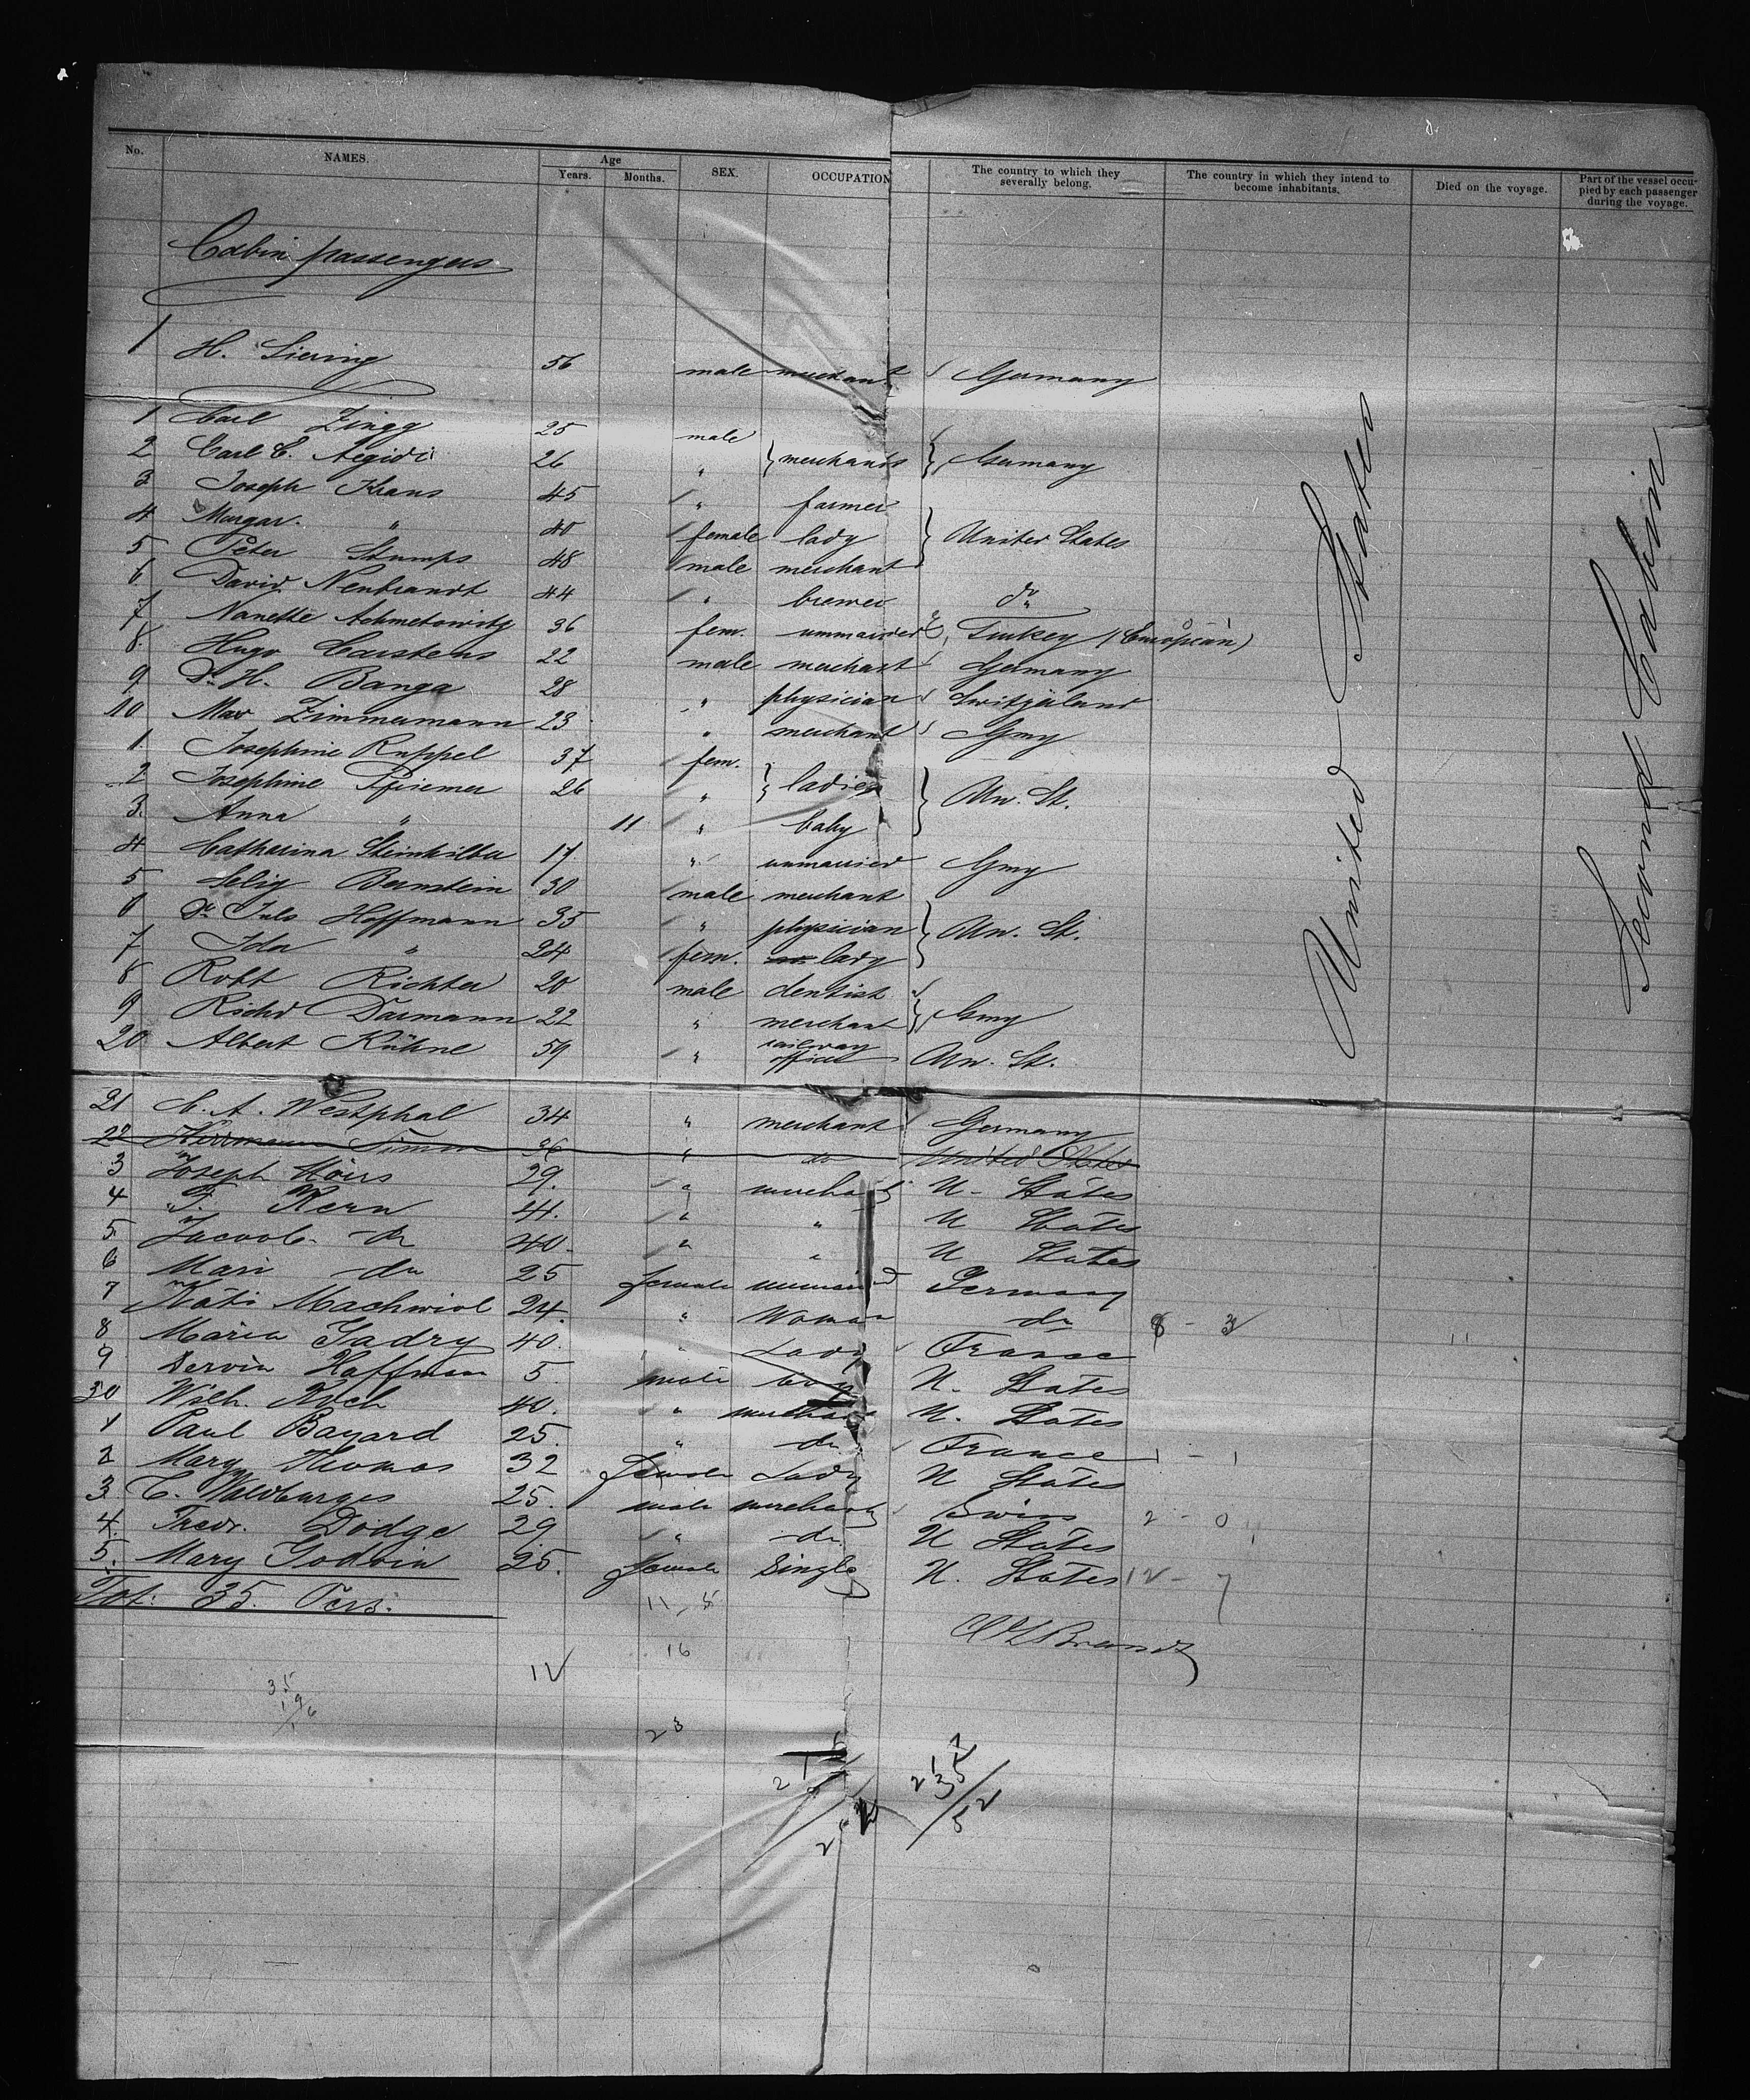 No. NAMES. Age Years. Months. SEX. OCCUPATION The country to which they severally belong. The country in which they intend to become inhabitants. Died on the voyage. Part of the vessel occupied by each passenger during the voyage.
Cabin passengers
1 H. Siering 56 male merchant Germany
1 Carl Zingg 25 male
2 Carl C. Aegidi 26 " } merchants } Germany
3 Joseph Kraus 45 " farmer
4 Margar. " 40 female lady } United States
5 Peter Stumps 48 male merchant
6 David Neubrandt 44 " brewer do
7 Nanette Achmetowitz 36 fem. unmarried Turkey (European)
8. Hugo Carstens 22 male merchant Germany
9 Dr. H. Banga 28 " physician Switzerland
10 Max Zimmermann 23 " merchant Gmy
1. Josephine Ruppel 37 fem.
2 Josephine Pfriemer 26 " } ladies } Un. St.
3. Anna " 11 " baby
4 Catharina Steinhilber 17 " unmarried Gmy
5 Selig Bernstein 30 male merchant
6 Dr Juls Hoffmann 35 " physician } Un. St.
7 Ida " 24 fem. lady
8 Robt Richter 20 male dentist
9 Richd Darmann 22 " merchant } Gmy
20 Albert Kühne 59 " railway officer Un. St.
21 C. A. Westphal 34 " merchant Germany
22 Herrmann Timm 36 " do United States
3 Joseph Moirs 29. " merchant U- States
4 F. Kern 44. " " U States
5. Jacob do 40. " " U States
6 Mari do 25 female unmarried Germany
7 Kati Machwiol 24. " Woman do 8 - 3
8 Maria Jadry 40. " Lady France
9 Servin Hoffman 5. male boy U. States
30 Wilh. Koch 40. " merchant U. States
1 Paul Bayard 25. " do France 1 - 1
2 Mary Thomas 32 female Lady U States
3 C. Waldburges 25. male merchant Swiss 2 - 0
4. Fredr. Dodge 29. " do U States
5. Mary Godwin 25. female Single U. States 12 - 7
Tot. 35. Pers.
11, 5
16
12
35
19
16
23
235
52
United States
Second Cabin